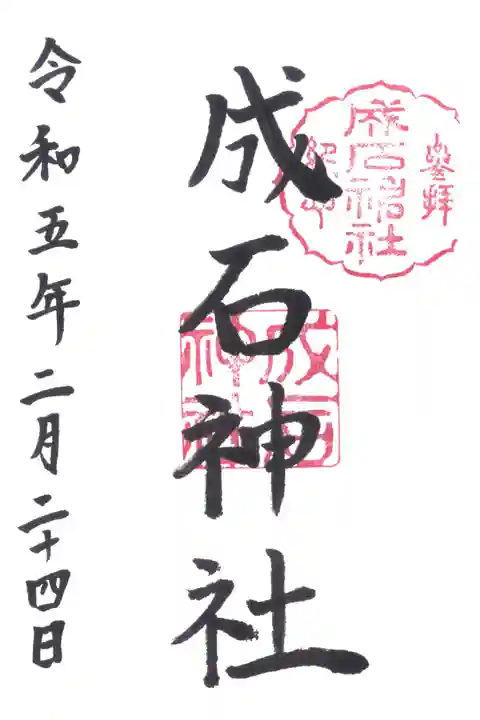 參拝
成石神社
紀念
成石神社
成石
神社
令和五年二月二十四日